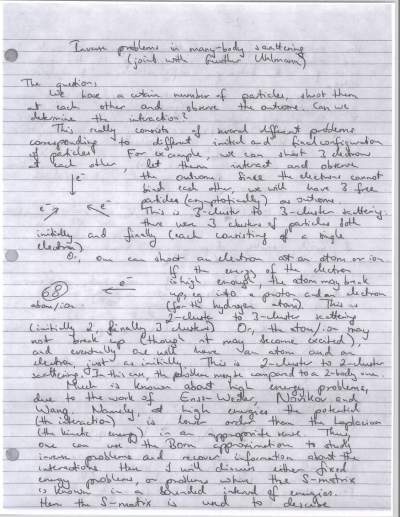 Inverse problems in many-body scattering
(joint with Gunther Uhlmann)
The question:
We have a certain number of particles, shoot them
at each other and observe the outcome. Can we
determine the interaction?
This really consists of several different problems
corresponding to different initial and final configuration
of particles. For example, we can shoot 3 electrons
at each other, let them interact and observe
the outcome. Since the electrons cannot
bind each other, we will have 3 free
particles (asymptotically) as outcome
This is 3-cluster to 3-cluster scattering:
there were 3 clusters of particles both
initially and finally (each consisting of a single
electron)
e⁻
e⁻
e⁻
Or, one can shoot an electron at an atom or ion
If the energy of the electron
is high enough, the atom may break
up, e.g. into a proton and an electron
(for the hydrogen atom). This is
2-cluster to 3-cluster scattering
e⁻
atom/ion
(initially 2, finally 3 clusters) Or, the atom/ion may
not break up (though it may become excited),
and eventually we will have an atom and an
electron just as initially. This is 2-cluster to 2-cluster
scattering. In this case, the problem may be compared to a 2-body one.
Much is known about high energy problems,
due to the work of Enss-Weder, Novikov and
Wang. Namely, at high energies the potential
(the interaction) is lower order than the Laplacian
(the kinetic energy) in an appropriate sense. Thus,
one can use the Born approximation to study
inverse problems and recover information about the
interactions. Here I will discuss either fixed
energy problems, or problems where the S-matrix
is known in a bounded interval of energies.
Here the S-matrix is used to describe